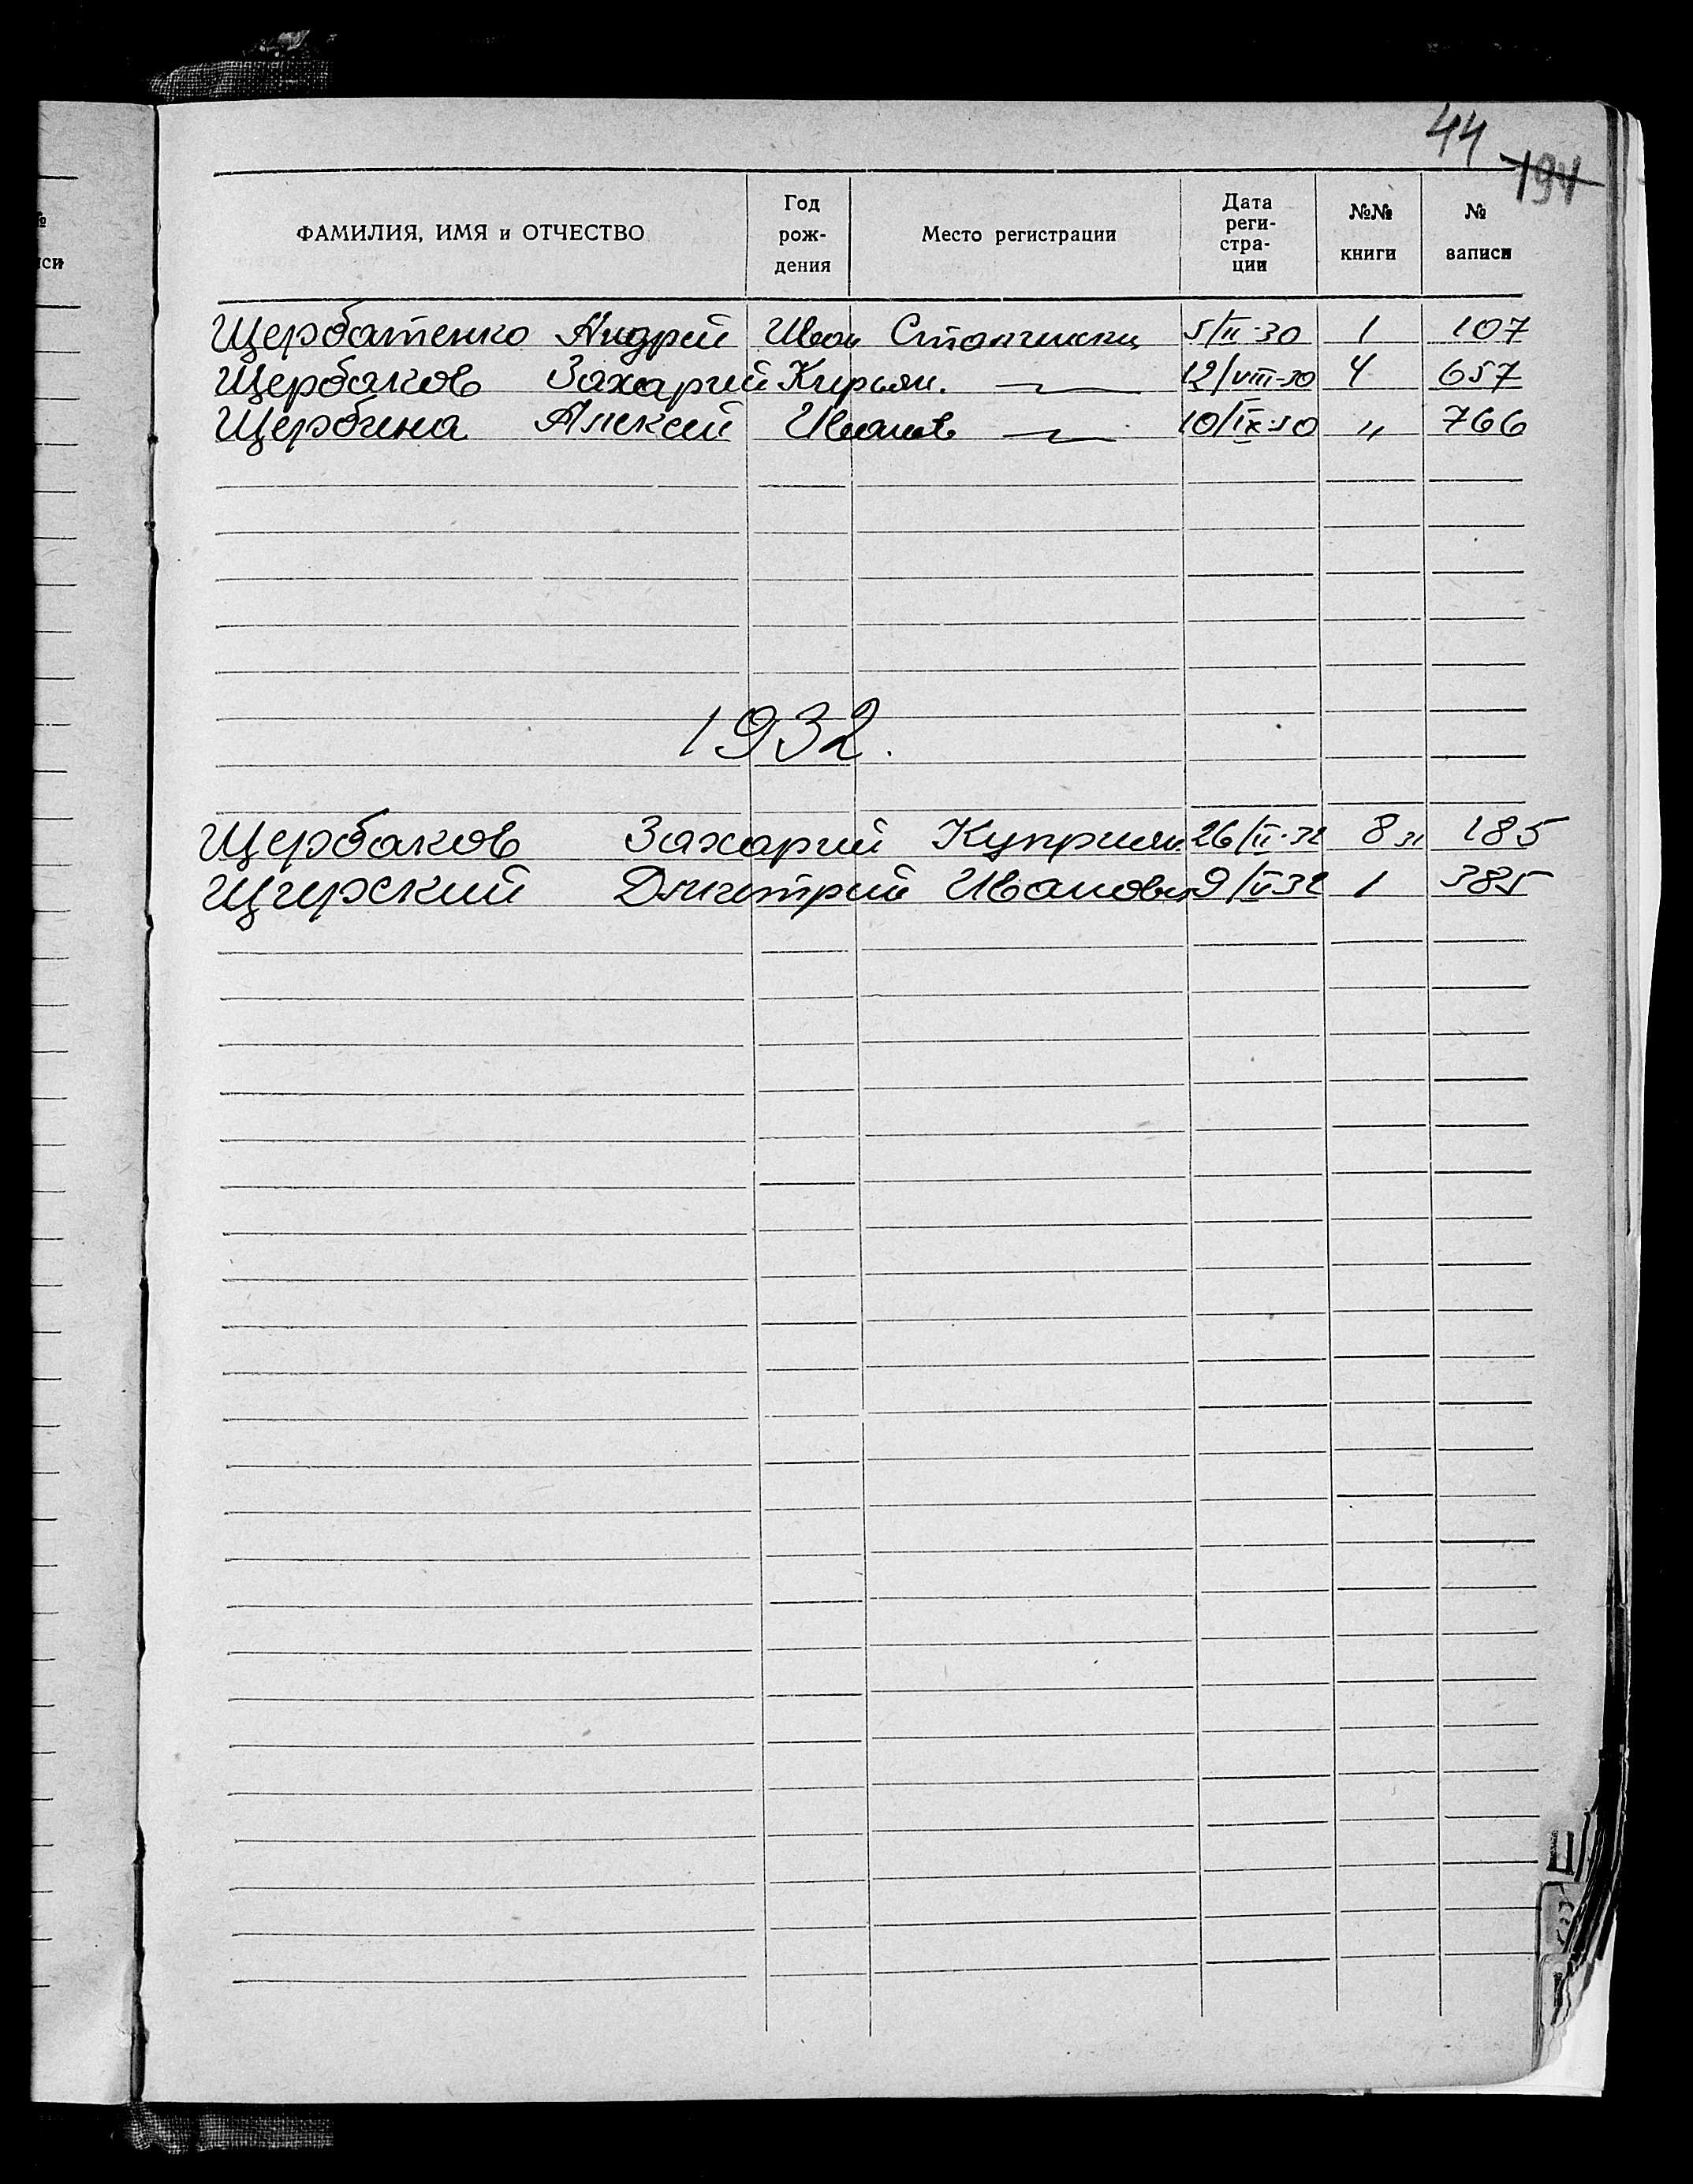 44
194
ФАМИЛИЯ, ИМЯ и ОТЧЕСТВО Год рождения Место регистрации Дата регистрации №№ книги № записи
Щербатенко Андрей Иван 5/II-30 1 107
Щербаков Захарий Кирьян. 12/VIII-30 4 657
Щербина Алексей Иванов 10/IX-30 " 766
1932.
Щербаков Захарий Куприян 26/II-32 8 31 185
Щирский Дмитрий Иванович 9/V 32 1 385